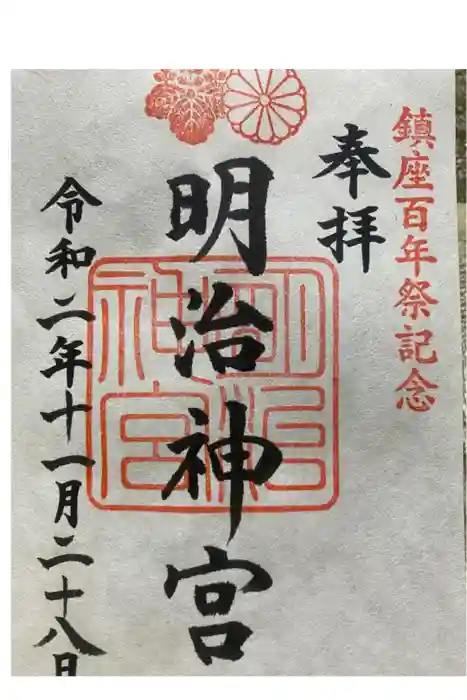 鎮座百年祭記念
奉拝
明治神宮
明治神宮
令和二年十一月二十八日